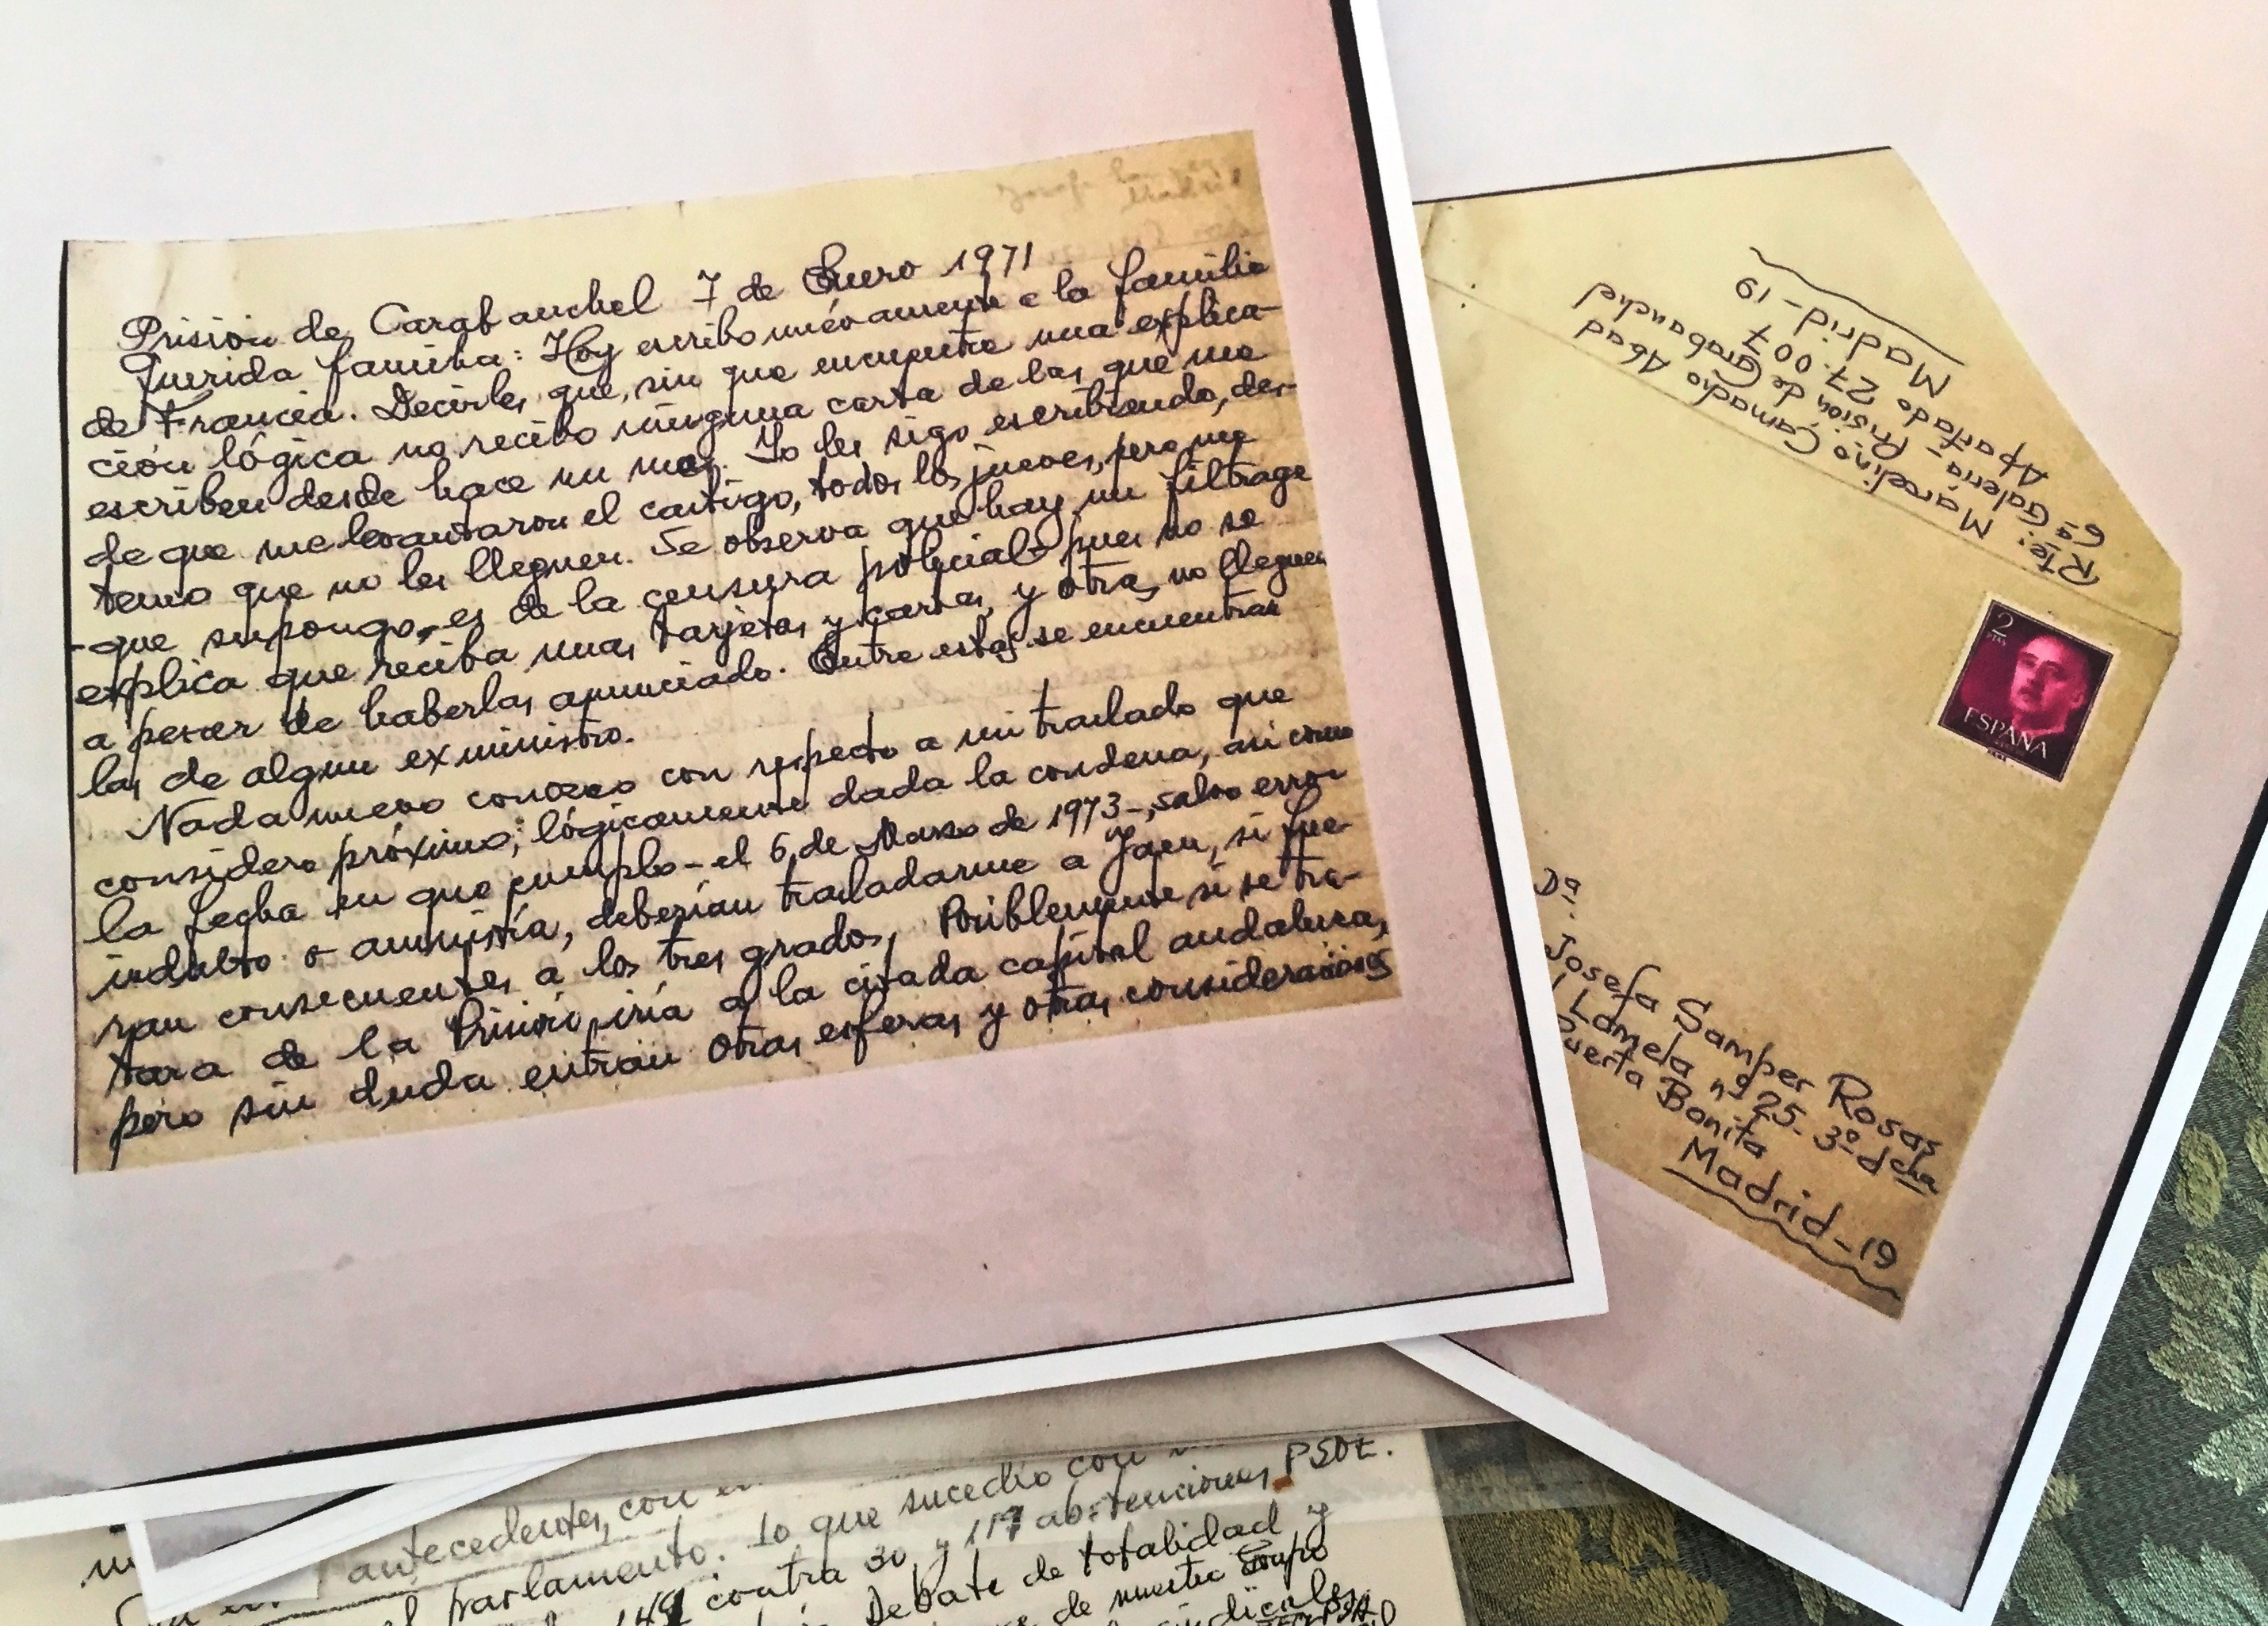 Prision de Carabanchel 7 de Enero 1971
Querida familia: Hoy escribo nuevamente a la familia
de Francia. Decirles que, sin que encuentre una explica-
ción lógica no recibo ninguna carta de las que me
escriben desde hace un mes. Yo les sigo escribiendo, des-
de que me levantaron el castigo, todos los jueves, pero me
temo que no les lleguen. Se observa que hay un filtrage
-que supongo, es de la censura policial- pues no se
explica que reciba unas tarjetas y cartas, y otras no lleguen
a pesar de haberlas anunciado. Entre estas se encuentran
las de algun exministro.
Nada nuevo conozco con respecto a mi traslado que
considero próximo; lógicamente dada la condena, asi como
la fecha en que cumplo - el 6 de Marzo de 1973 -, salvo error
indulto o amnistía, deberían trasladarme a Jaen, si fue-
ran consecuentes a los tres grados. Posiblemente si se tra-
tara de la Prisión, iría a la citada capital andaluza,
pero sin duda entran otras esferas y otras consideraciones
Rte: Marcelino Camacho Abad
6ª Galería - Prisión de Carabanchel
Apartado 27.007
Madrid - 19
2
PTAS
ESPAÑA
Dª.
Josefa Samper Rosas
Lamela nº 25 - 3º dcha
Puerta Bonita
Madrid - 19
antecedentes, con
parlamento. lo que sucedio con
149 contra 30 y 117 abstenciones PSOE.
Debate de totalidad y
de nuestro Grupo
sindicales